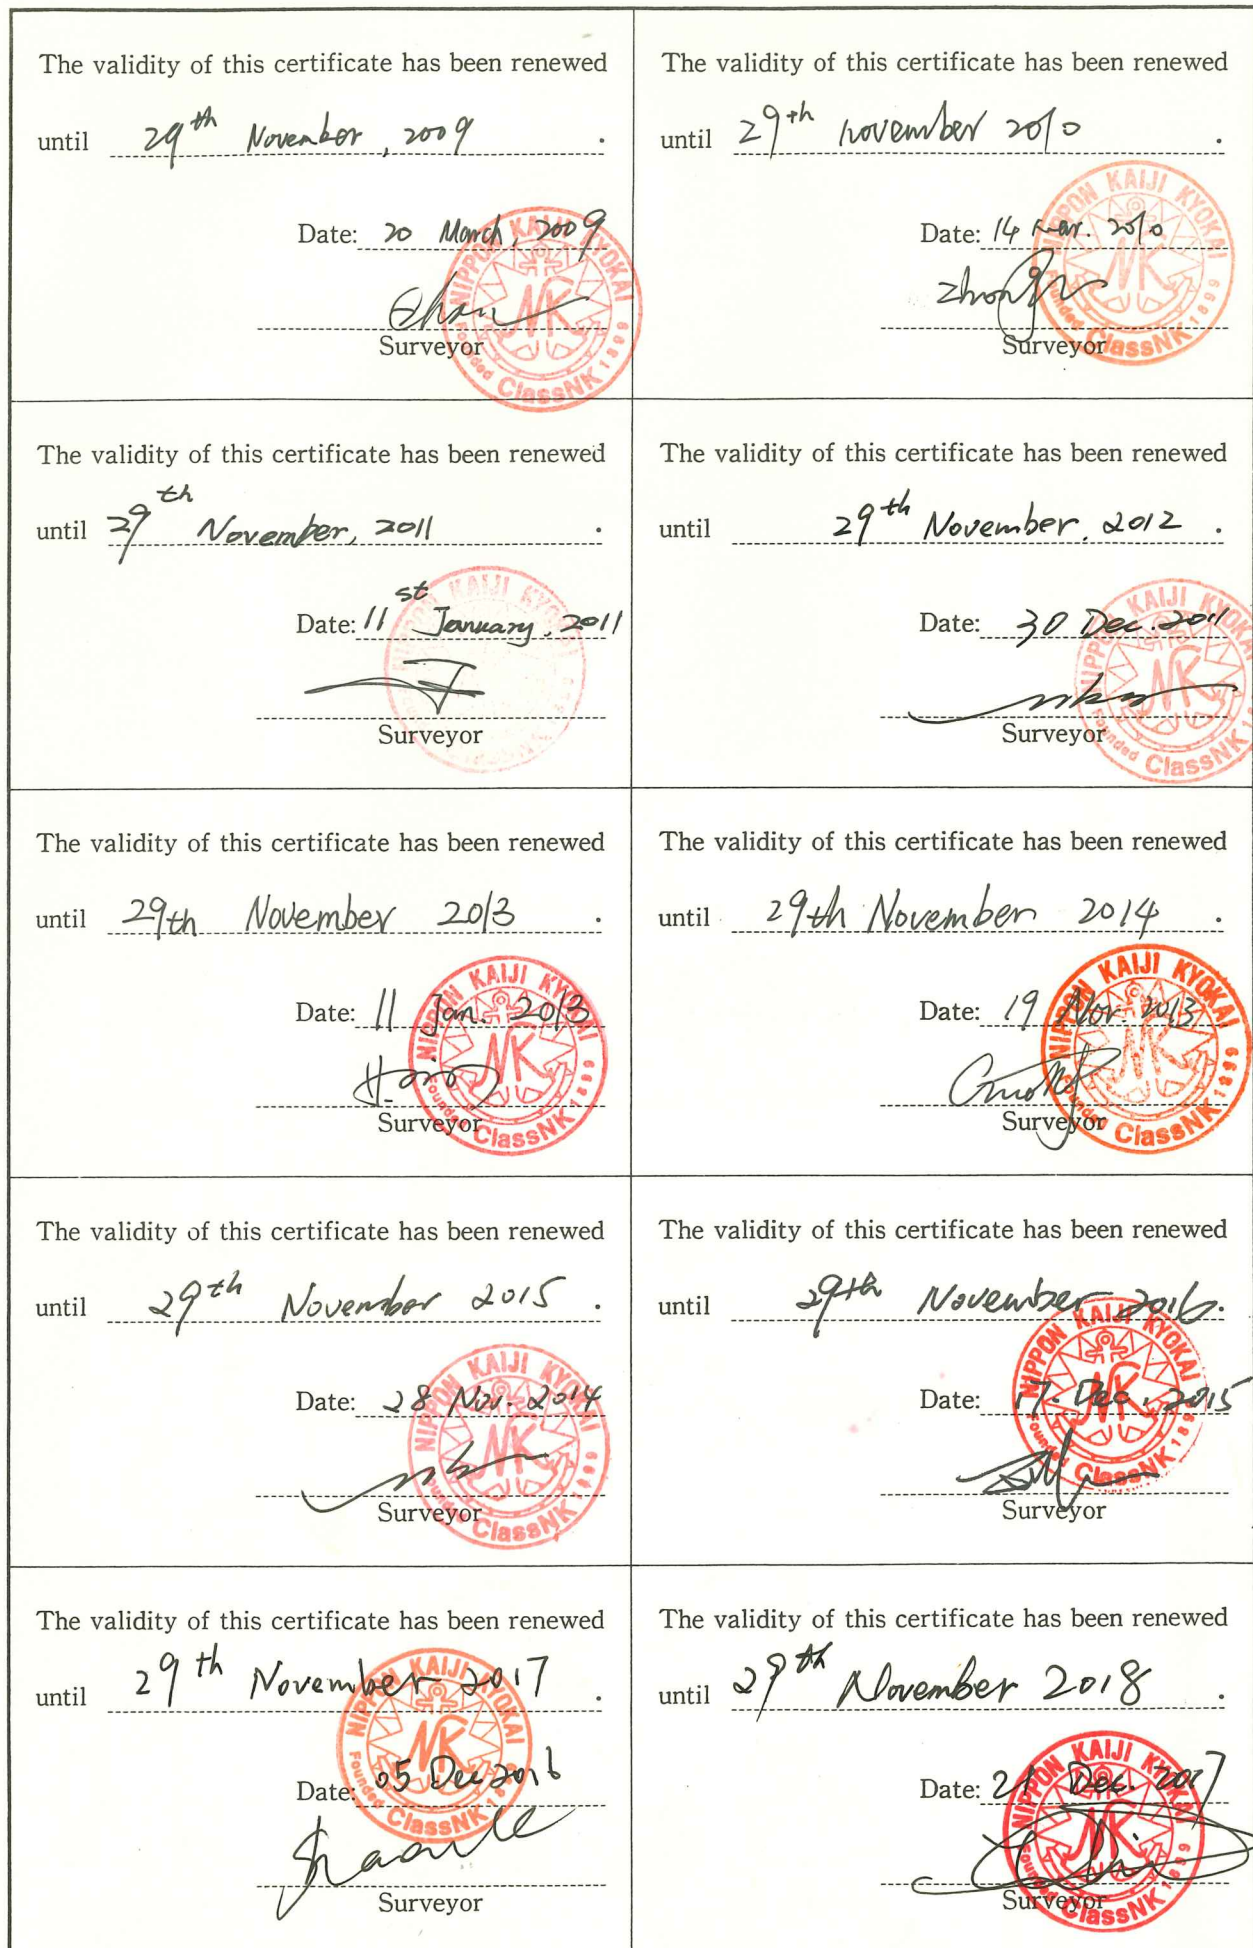 The validity of this certificate has been renewed
until 29th November, 2009 .
Date: 20 March, 2009
Surveyor
NIPPON KAIJI KYOKAI
NK
Founded ClassNK 1899
The validity of this certificate has been renewed
until 29th November 2010 .
Date: 14 Mar. 2010
Surveyor
NIPPON KAIJI KYOKAI
NK
Founded ClassNK 1899
The validity of this certificate has been renewed
until 29th November, 2011 .
Date: 11st January, 2011
Surveyor
NIPPON KAIJI KYOKAI
The validity of this certificate has been renewed
until 29th November, 2012 .
Date: 30 Dec. 2011
Surveyor
NIPPON KAIJI KYOKAI
NK
Founded ClassNK
The validity of this certificate has been renewed
until 29th November 2013 .
Date: 11 Jan. 2013
Surveyor
NIPPON KAIJI KYOKAI
NK
Founded ClassNK 1899
The validity of this certificate has been renewed
until 29th November 2014 .
Date: 19 Nov. 2013
Surveyor
NIPPON KAIJI KYOKAI
NK
Founded ClassNK 1899
The validity of this certificate has been renewed
until 29th November 2015 .
Date: 28 Nov. 2014
Surveyor
NIPPON KAIJI KYOKAI
NK
Founded ClassNK 1899
The validity of this certificate has been renewed
until 29th November 2016 .
Date: 17. Dec. 2015
Surveyor
NIPPON KAIJI KYOKAI
NK
Founded ClassNK 1899
The validity of this certificate has been renewed
until 29th November 2017 .
Date: 05 Dec 2016
Surveyor
NIPPON KAIJI KYOKAI
NK
Founded ClassNK 1899
The validity of this certificate has been renewed
until 29th November 2018 .
Date: 21 Dec. 2017
Surveyor
NIPPON KAIJI KYOKAI
NK
Founded ClassNK 1899